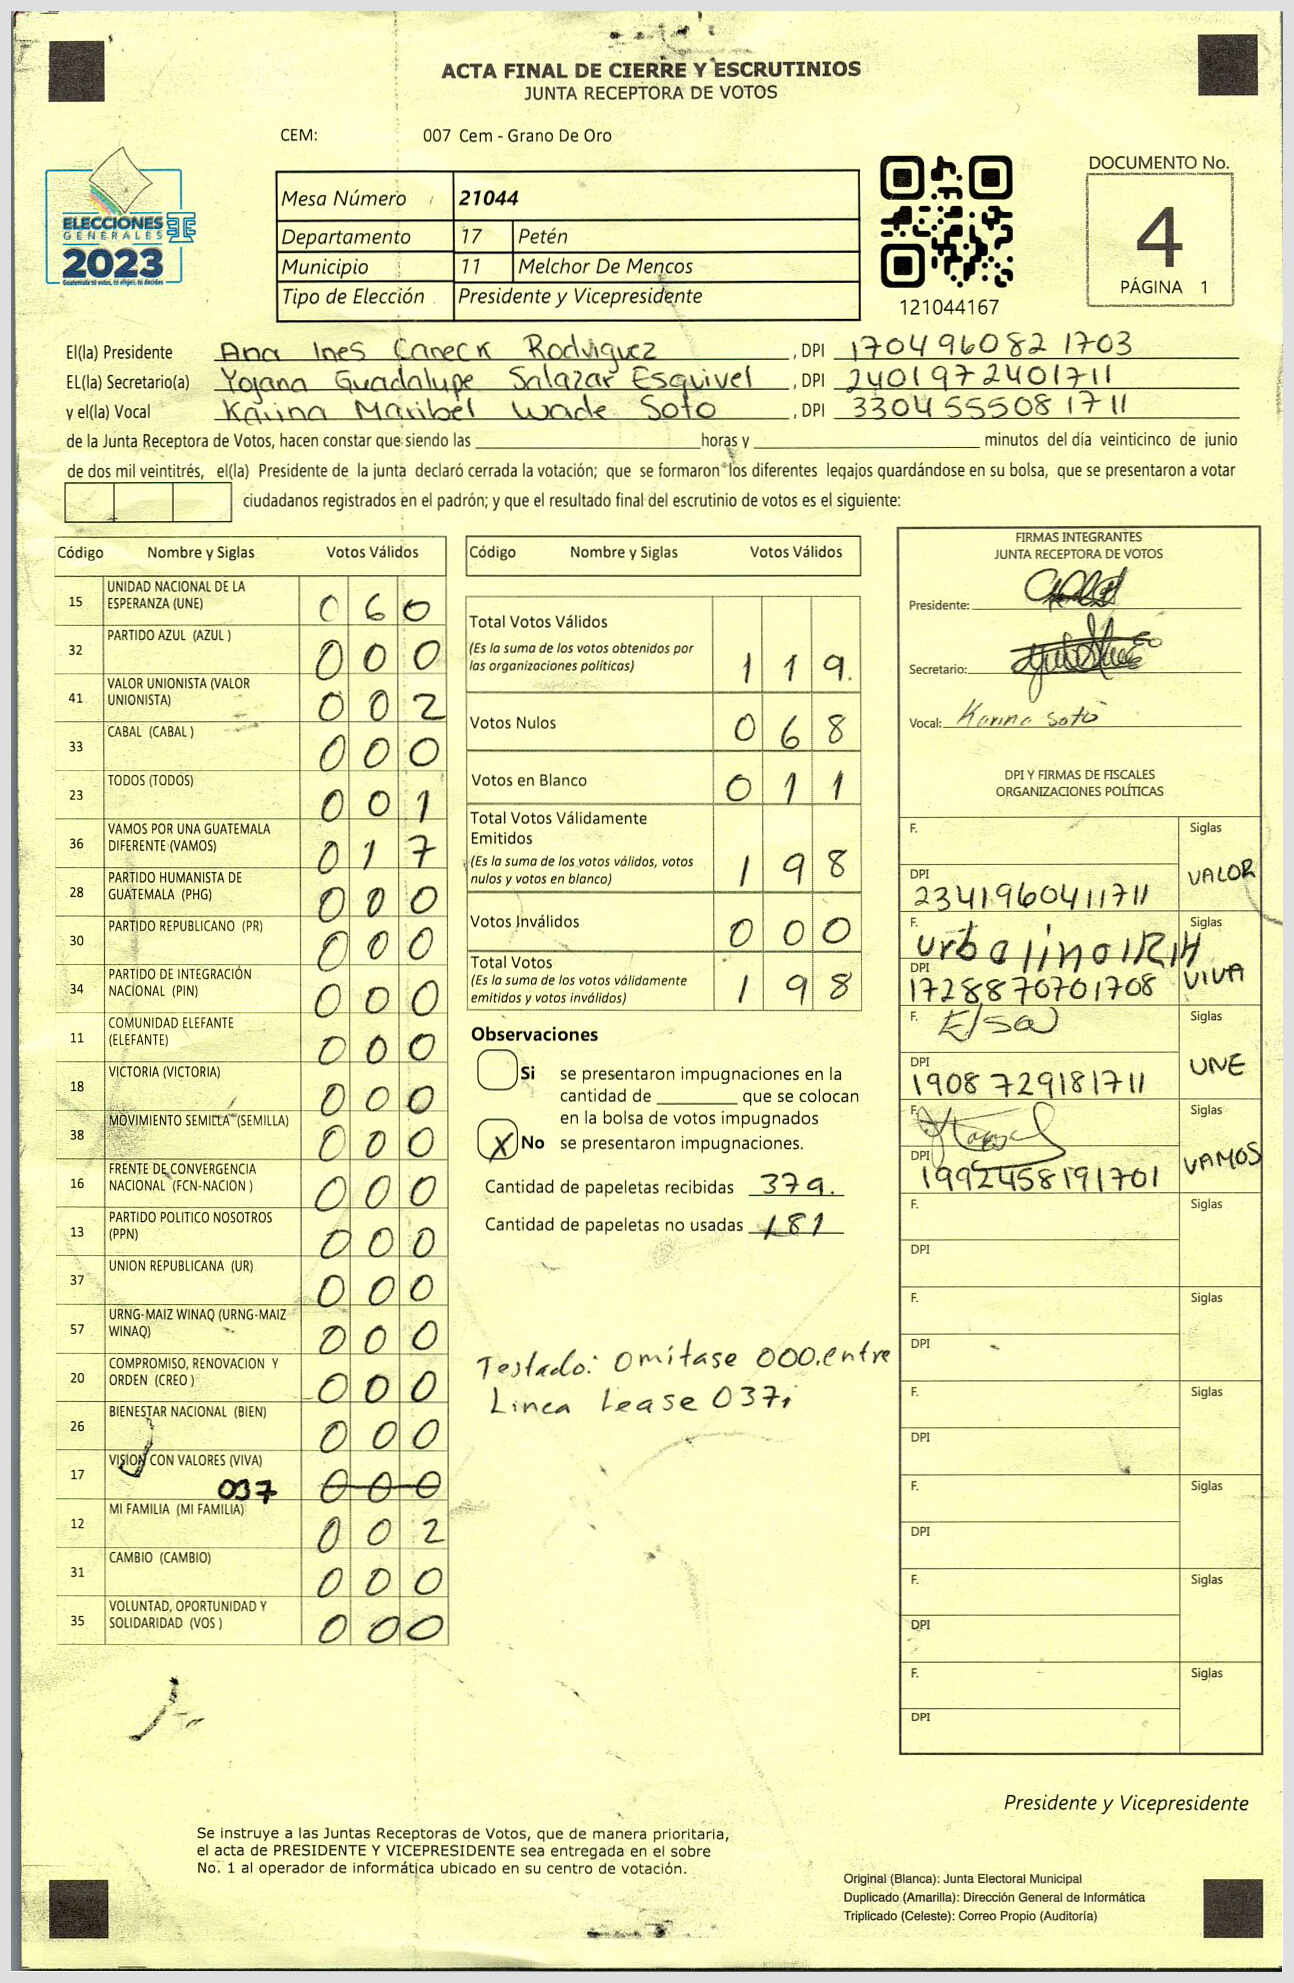 ACTA FINAL DE CIERRE Y ESCRUTINIOS
JUNTA RECEPTORA DE VOTOS
CEM: 007 Cem - Grano De Oro
ELECCIONES
GENERALES
2023
Guatemala tú votas, tú eliges, tú decides
Mesa Número 21044
Departamento 17 Petén
Municipio 11 Melchor De Mencos
Tipo de Elección Presidente y Vicepresidente
121044167
DOCUMENTO No.
4
PÁGINA 1
El(la) Presidente Ana Ines Caneck Rodriguez , DPI 1704960821703
EL(la) Secretario(a) Yojana Guadalupe Salazar Esquivel , DPI 2401972401711
y el(la) Vocal Karina Maribel Wade Soto , DPI 3304555081711
de la Junta Receptora de Votos, hacen constar que siendo las horas y minutos del día veinticinco de junio
de dos mil veintitrés, el(la) Presidente de la junta declaró cerrada la votación; que se formaron los diferentes legajos quardándose en su bolsa, que se presentaron a votar
ciudadanos registrados en el padrón; y que el resultado final del escrutinio de votos es el siguiente:
Código Nombre y Siglas Votos Válidos
15 UNIDAD NACIONAL DE LA ESPERANZA (UNE) 0 6 0
32 PARTIDO AZUL (AZUL ) 0 0 0
41 VALOR UNIONISTA (VALOR UNIONISTA) 0 0 2
33 CABAL (CABAL ) 0 0 0
23 TODOS (TODOS) 0 0 1
36 VAMOS POR UNA GUATEMALA DIFERENTE (VAMOS) 0 1 7
28 PARTIDO HUMANISTA DE GUATEMALA (PHG) 0 0 0
30 PARTIDO REPUBLICANO (PR) 0 0 0
34 PARTIDO DE INTEGRACIÓN NACIONAL (PIN) 0 0 0
11 COMUNIDAD ELEFANTE (ELEFANTE) 0 0 0
18 VICTORIA (VICTORIA) 0 0 0
38 MOVIMIENTO SEMILLA (SEMILLA) 0 0 0
16 FRENTE DE CONVERGENCIA NACIONAL (FCN-NACION ) 0 0 0
13 PARTIDO POLITICO NOSOTROS (PPN) 0 0 0
37 UNION REPUBLICANA (UR) 0 0 0
57 URNG-MAIZ WINAQ (URNG-MAIZ WINAQ) 0 0 0
20 COMPROMISO, RENOVACION Y ORDEN (CREO ) 0 0 0
26 BIENESTAR NACIONAL (BIEN) 0 0 0
17 VISION CON VALORES (VIVA) 037 0 0 0
12 MI FAMILIA (MI FAMILIA) 0 0 2
31 CAMBIO (CAMBIO) 0 0 0
35 VOLUNTAD, OPORTUNIDAD Y SOLIDARIDAD (VOS ) 0 0 0
Código Nombre y Siglas Votos Válidos
Total Votos Válidos
(Es la suma de los votos obtenidos por
las organizaciones políticas) 1 1 9.
Votos Nulos 0 6 8
Votos en Blanco 0 1 1
Total Votos Válidamente
Emitidos
(Es la suma de los votos válidos, votos
nulos y votos en blanco) 1 9 8
Votos Inválidos 0 0 0
Total Votos
(Es la suma de los votos válidamente
emitidos y votos inválidos) 1 9 8
Observaciones
Si se presentaron impugnaciones en la
cantidad de que se colocan
en la bolsa de votos impugnados
X No se presentaron impugnaciones.
Cantidad de papeletas recibidas 379.
Cantidad de papeletas no usadas 181
Testado: Omitase 000.entre
Linea Lease 037;
FIRMAS INTEGRANTES
JUNTA RECEPTORA DE VOTOS
Presidente:
Secretario:
Vocal: Karina Soto
DPI Y FIRMAS DE FISCALES
ORGANIZACIONES POLÍTICAS
F. Siglas
VALOR
DPI
2341960411711
F. Siglas
DPI
1728870701708 VIVA
F. Elsa Siglas
UNE
DPI
1908729181711
F. Siglas
DPI VAMOS
1992458191701
F. Siglas
DPI
F. Siglas
DPI
F. Siglas
DPI
F. Siglas
DPI
F. Siglas
DPI
F. Siglas
DPI
Presidente y Vicepresidente
Se instruye a las Juntas Receptoras de Votos, que de manera prioritaria,
el acta de PRESIDENTE Y VICEPRESIDENTE sea entregada en el sobre
No. 1 al operador de informática ubicado en su centro de votación.
Original (Blanca): Junta Electoral Municipal
Duplicado (Amarilla): Dirección General de Informática
Triplicado (Celeste): Correo Propio (Auditoría)